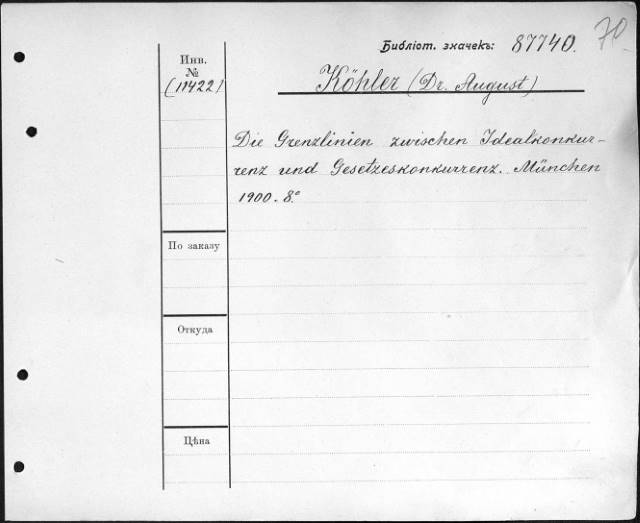 Библіот. значекъ: 87740.
70
Инв.
№
(11422)
Köhler (Dr. August)
Die Grenzlinien zwischen Idealkonkur-
renz und Gesetzeskonkurrenz. München
1900. 8°
По заказу
Откуда
Цѣна